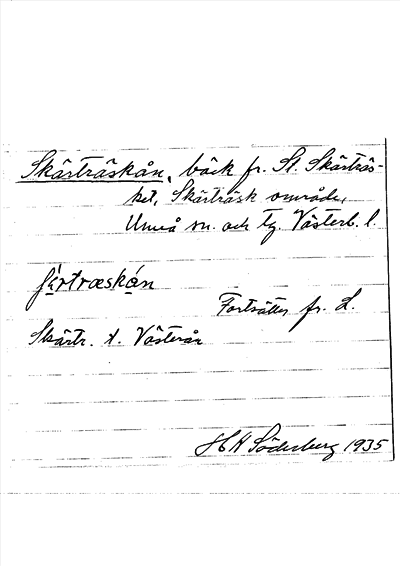 Skärträskån, bäck fr. St. Skärträs-
ket, Skärträsk område,
Umeå sn. och tg. Västerb. l.
Fortsätter fr. L.
Skärtr. t. Västerån
H Söderberg 1935